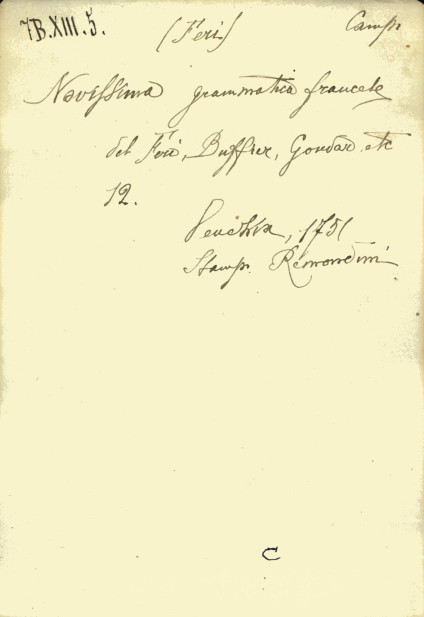 7B.XIII.5.
(Feri)
Camp.
Novissima grammatica francese
del Feri, Buffier, Goudar etc
12.
Venezia, 1751
Stamp. Remondini
C